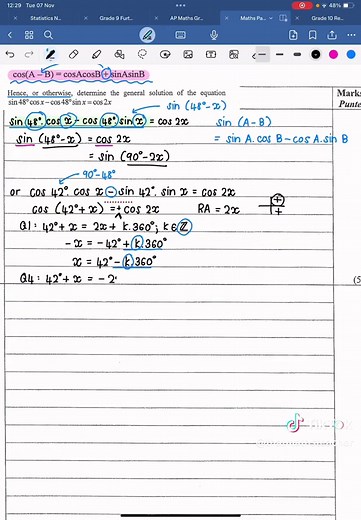 12:29 Tue 07 Nov
48%
Statistics N...
Grade 9 Furt...
AP Maths Gr...
Maths Pa...
Grade 10 Re...
cos(A – B) = cosAcosB + sinAsinB
Hence, or otherwise, determine the general solution of the equation
sin 48° cos x – cos 48° sin x = cos 2x
Marks
Punte
sin (48°-x)
sin 48°. cos x - cos 48°. sin x = cos 2x
sin (A-B)
sin (48°-x) = cos 2x
= sin A. cos B - cos A. sin B
= sin (90°-2x)
90°-48°
or cos 42°. cos x - sin 42°. sin x = cos 2x
cos (42°+x) = + cos 2x
RA = 2x
+
+
Q1: 42°+x = 2x + k.360°; k∈ℤ
-x = -42°+k.360°
x = 42°-k.360°
Q4: 42°+x = -2
(5